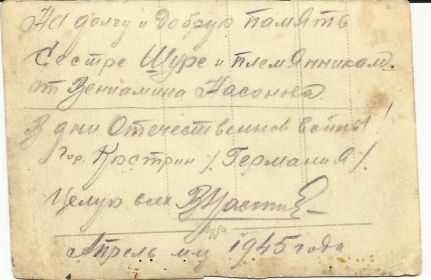 На долгу и добрую память
Сестре Шуре и племянникам.
от Вениамина Насонова
В дни Отечественной войны!
гор. Кюстрин /. Германия /.
Целую всех
Апрель м-ц 1945 года